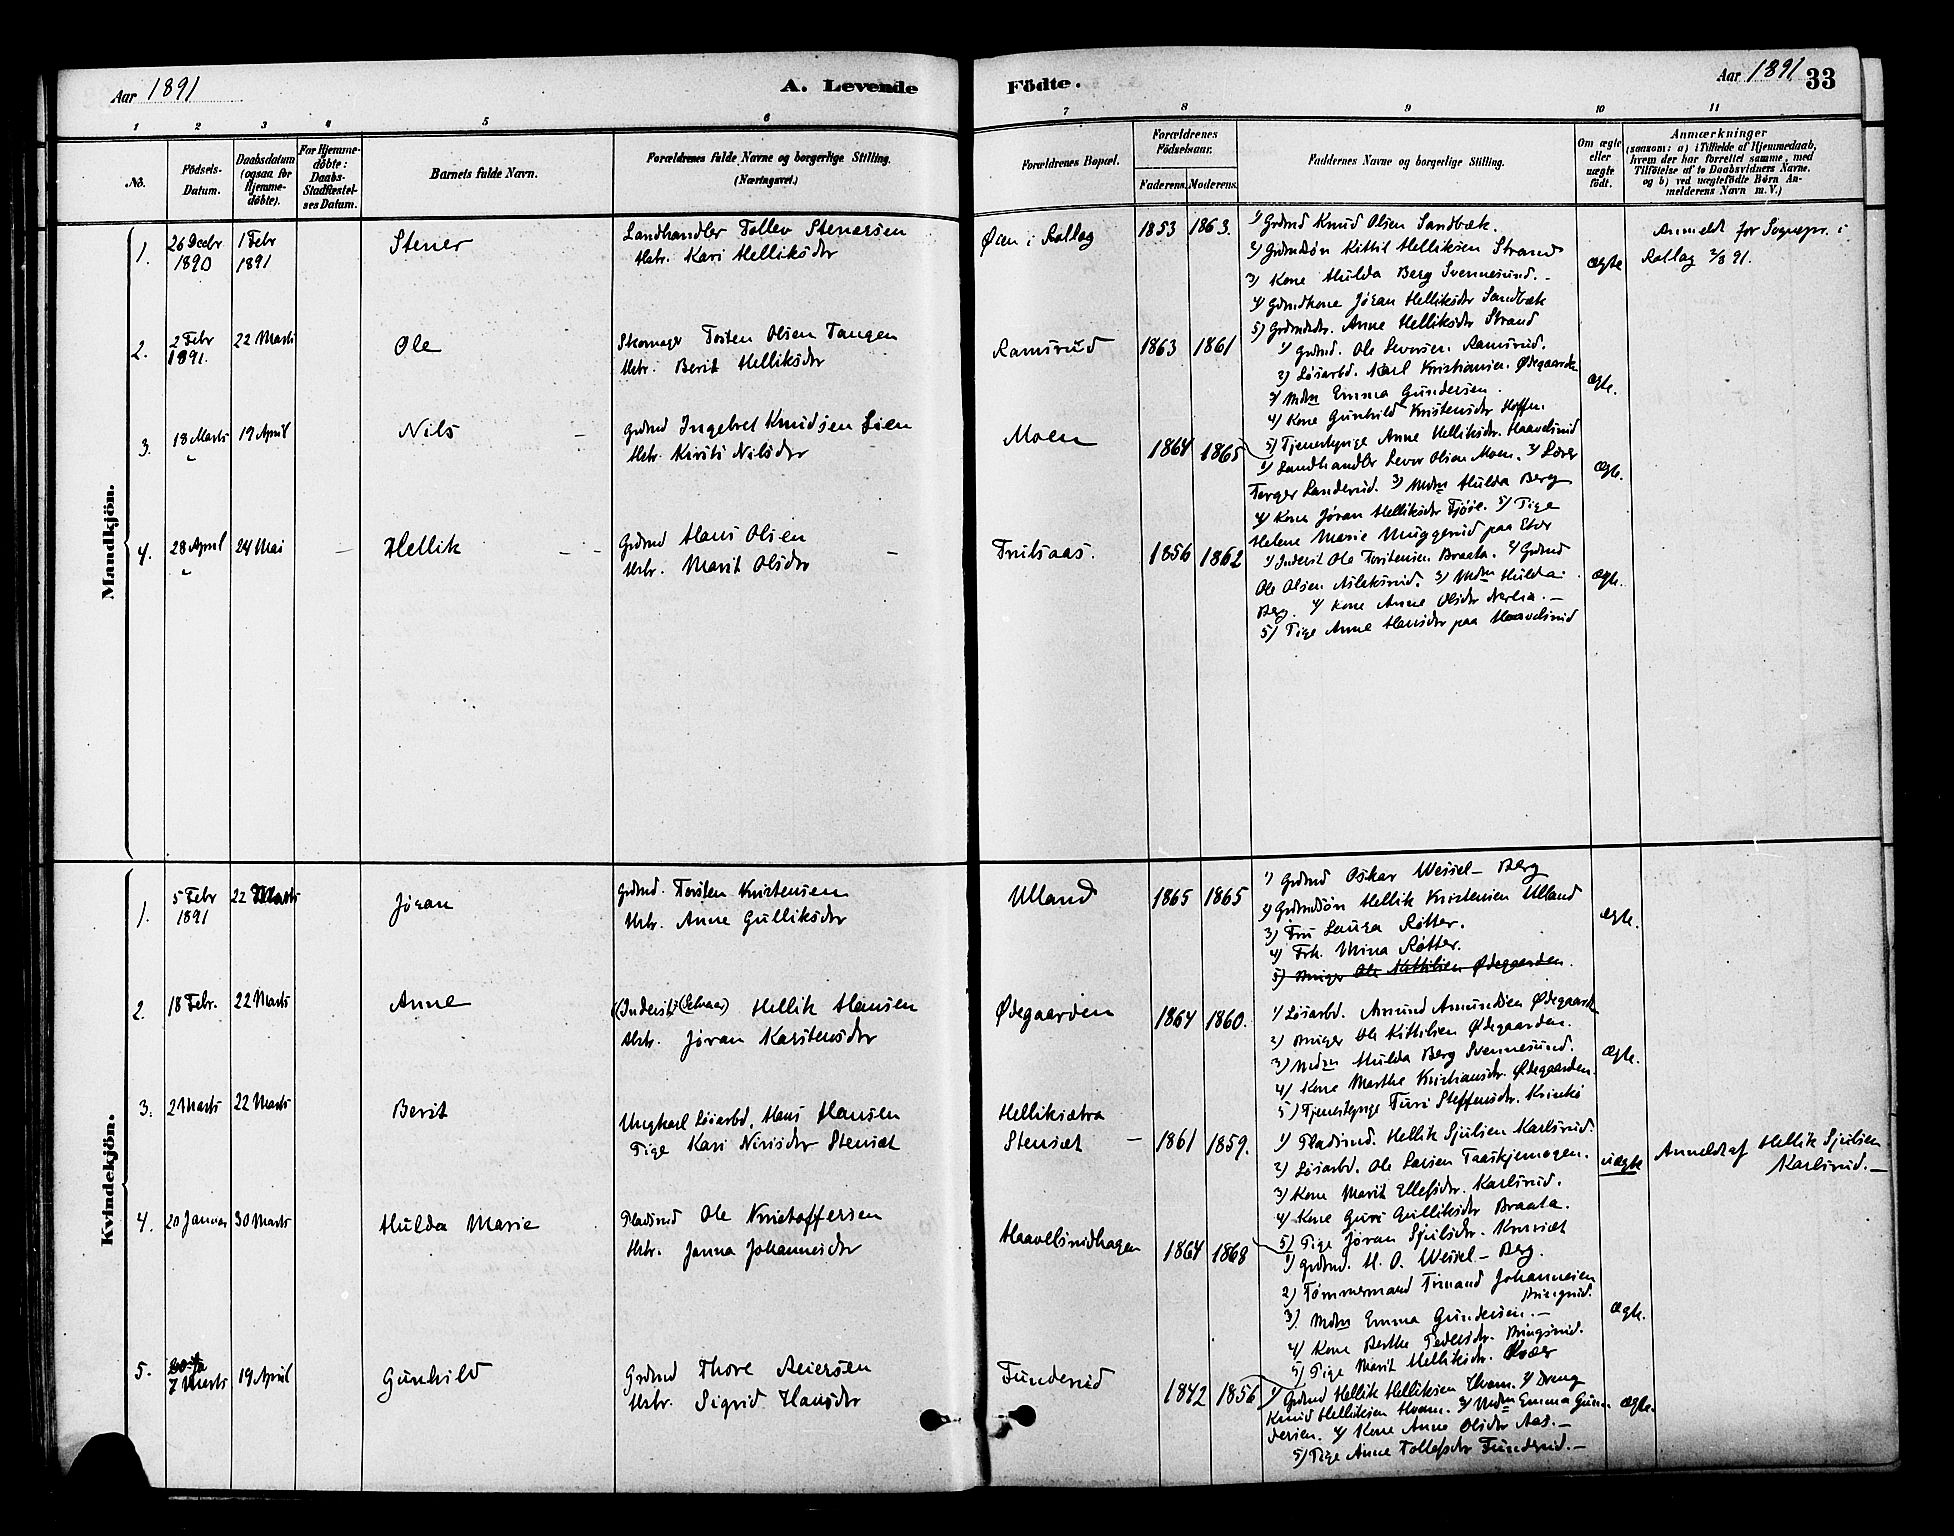 Aar 1891
A. Levende
Födte.
Aar 1891
33
1 2 3 4 5 6 7 8 9 10 11
No.
Födsels-
Datum.
Daabsdatum
(ogsaa for
Hjemme-
döbte).
For Hjemme-
döbte:
Daabs-
Stadfæstel-
ses Datum.
Barnets fulde Navn.
Forældrenes fulde Navne og borgerlige Stilling.
(Næringsvei.)
Forældrenes Bopæl.
Forældrenes
Födselsaar.
Faderens. Moderens.
Faddernes Navne og borgerlige Stilling.
Om ægte
eller
uægte
født.
Anmærkninger
(saasom: a) i Tilfælde af Hjemmedaab,
hvem der har forrettet samme, med
Tilföielse af to Daabsvidners Navne.
og b) ved uægtefödte Börn An-
melderens Navn m. V.)
Mandkjön.
1.
26 Decbr
1890
1 Febr
1891
Stener
Landhandler Tollev Stenersen
Hstr. Kari Helliksdr
Øien i Rollag
1853 1863.
1) Grdmd Knud Olsen Sandbæk.
2) Grdmdsön Kittil Helliksen Strand
3) Kone Hulda Berg Svennesund. -
4) Grdmdkone Jöran Helliksdr Sandbæk
5) Grdmdsdtr. Anne Helliksdr Strand
ægte
Anmeldt for Sognepr. i
Rollag 2/8 91.
2.
2 Febr
1891.
22 Marts
Ole
Skomager Torsten Olsen Tangen
Hstr. Berit Helliksdr
Ramsrud
1863 1861
1) Grdmd. Ole Seversen Ramsrud.
2) Løsarbd. Karl Kristiansen Ødegaarden
3) Mdm Emma Gundersen.
4) Kone Gunhild Kristensdr Hoffm.
5) Tjenestepige Anne Helliksdr. Haavelsrud
ægte.
3.
18 Marts
19 April
Nils
Grdmd Ingebret Knudsen Lien
Hstr. Kirsti Nilsdr
Moen
1864 1865
1) Landhandler Sever Olsen Moen. 2) Lærer
Torger Landerud. 3) Mdm Hulda Berg
4) Kone Jöran Helliksdr Fjöse. 5) Pige
Helene Marie Muggerud paa
ægte.
4.
28 April
24 Mai
Hellik
Grdmd Hans Olsen
Hstr. Marit Olsdr
Trulsaas.
1856 1862
1) Inderst Ole Torstensen Braata. 2) Grdmd
Ole Olsen Aslaksrud. 3) Mdm Hulda
Berg. 4) Kone Anne Olsdr Nerlia. -
5) Pige Anne Hansdr paa Haavelsrud
ægte.
Kvindekjön.
1.
5 Febr
1891
22 Marts
Jöran
Grdmd. Torsten Kristensen
Hstr. Anne Gulliksdr
Ulland
1865 1865
1) Grdmd Oskar Wessel-Berg
2) Grdmdsön Hellik Kristensen Ulland
3) Fru Laura Røtter.
4) Frk. Mina Røtter.
5) Bruger Ole Kittilsen Ødegaarden.
ægte.
2.
18 Febr.
22 Marts
Anne
(Inderst) Hellik Hansen
Hstr. Jöran Karstensdr
Ødegaarden
1864 1860.
1) Løsarbd. Amund Amundsen Ødegaarden
2) Bruger Ole Kittilsen Ødegaarden.
3) Mdm Hulda Berg Svennesund.
4) Kone Marthe Kristiansdr. Ødegaarden.
5) Tjenestepige Turi Steffensdr.
ægte.
3.
2 Marts
22 Marts
Berit
Ungkarl Løsarbd. Hans Hansen
Pige Kari Nirisdr Stensæt
Helliksætra
Stensæt
1861 1859.
1) Pladsmd. Hellik Sjulsen Karlsrud.
2) Løsarbd. Ole Larsen Taaskjernogen.
3) Kone Marit Ellefsdr. Karlsrud.
4) Kone Guri Gulliksdr Braata.
5) Pige Jöran Sjulsdr.
uægte
Anmeldt af Hellik Sjulsen
Karlsrud. -
4.
20 Januar
30 Marts
Hulda Marie
Pladsmd Ole Kristoffersen
Hstr. Janna Johannesdr
Haavelsrudhagen
1864 1868
1) Grdmd. H. O. Wessel-Berg.
2) Tømmermand Johannesen
Bringsrud.
3) Mdm Emma Gundersen. -
4) Kone Berthe Pedersdr. Bringsrud.
5) Pige Marit Helliksdr.
ægte.
5.
7 Marts
19 April
Gunhild
Grdmd Thore Reiersen
Hstr. Sigrid Hansdr
Funderud
1842 1856
1) Grdmd Hellik Helliksen Hvam. 2) Dreng
Knud Helliksen Hvam. 3) Mdm Emma Gun-
dersen. 4) Kone Anne Olsdr Aas. -
5) Pige Anne Tollefsdr Funderud. -
ægte.